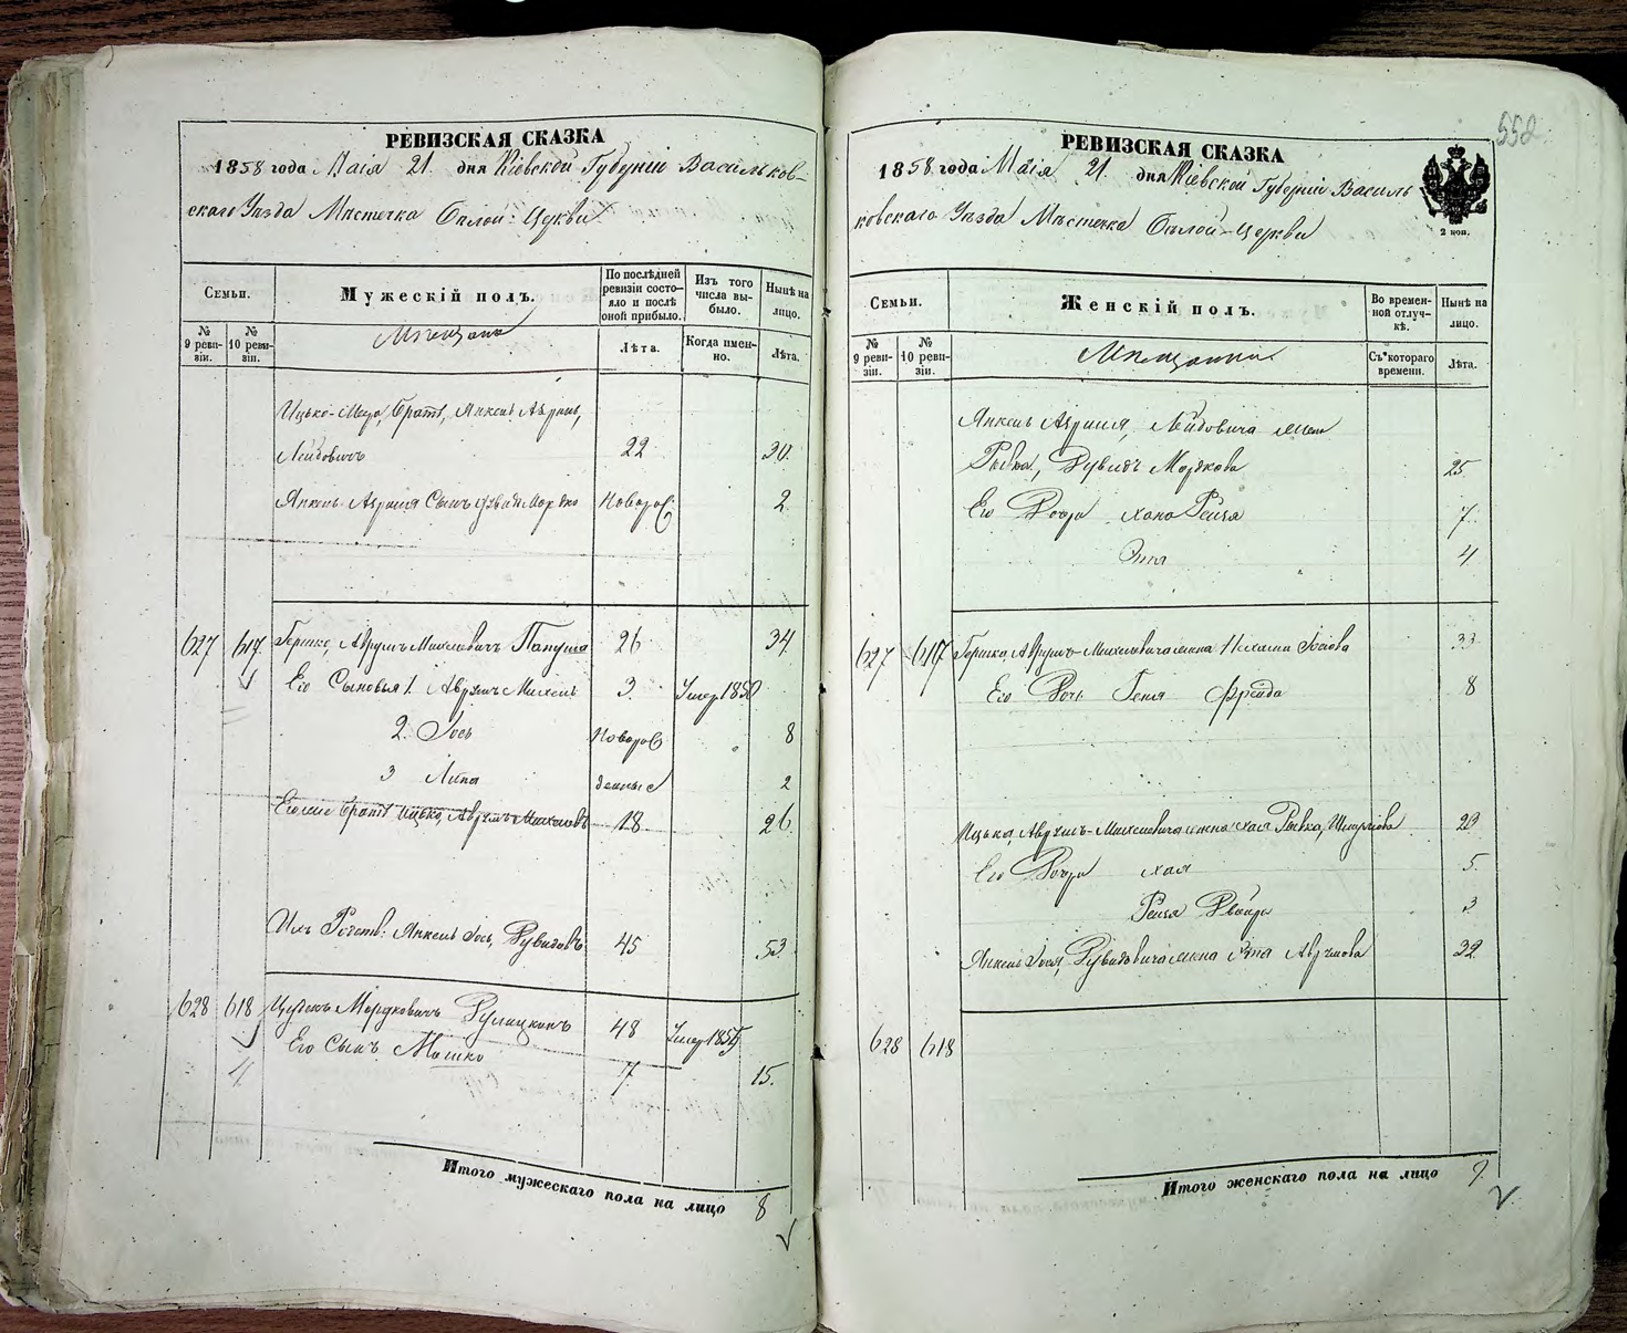 РЕВИЗСКАЯ СКАЗКА
1858 года Маія 21 дня Кіевской Губерніи Васильков-
скаго Уѣзда Мѣстечка Бѣлой-Церкви
Семьи.
Мужескій полъ.
По послѣдней ревизіи состо-
яло и послѣ оной прибыло.
Изъ того числа вы-
было.
Нынѣ на лицо.
№ 9 реви-
зіи.
№ 10 реви-
зіи.
Мѣщане
Лѣта.
Когда имен-
но.
Лѣта.
Ицько-Меер, братъ, Янкель Авруминъ,
Лейбовичъ 22 30.
Янкель Аврума Сынъ Дувидъ Мордко Новорож: 2.
627 617. Гершко, Аврумъ Михелевичъ Пануша 26 34.
Его Сыновья 1. Аврумъ Михель 3. Умер 1850
2. Іось Новорож 8
3 Липа денные 2
Его же братъ Ицько, Аврумъ Михелевъ 18 26.
Ихъ Родств: Янкель Іось, Дувидовъ 45 53.
628 618 Мордковичъ 48 Умер 1855
Его Сынъ Мошко 7. 15.
4.
Итого мужескаго пола на лицо 8
558
РЕВИЗСКАЯ СКАЗКА
1858 года Маія 21. дня Кіевской Губерніи Василь
ковскаго Уѣзда Мѣстечка Бѣлой-Церкви
2 коп.
Семьи.
Женскій полъ.
Во времен-
ной отлуч-
кѣ.
Нынѣ на лицо.
№ 9 реви-
зіи.
№ 10 реви-
зіи.
Мѣщанки
Съ котораго времени.
Лѣта.
Янкель Аврума, Лейбовича жена
Ривка, Дувидъ Мордкова 25
Его Дочери Хана Рейзя 7.
Эня 4
627 617 Гершка, Аврумъ-Михелевича жена Нехама Іосіова 33
Его Дочь Геня Фрейда 8
Ицька, Аврумъ-Михелевича жена Хая Ривка, 23
Его Дочери Хая 5.
Рейзя Двойра 3
Янкеля Іося, Дувидовича жена Аврумова 32
628 618
Итого женскаго пола на лицо 9.